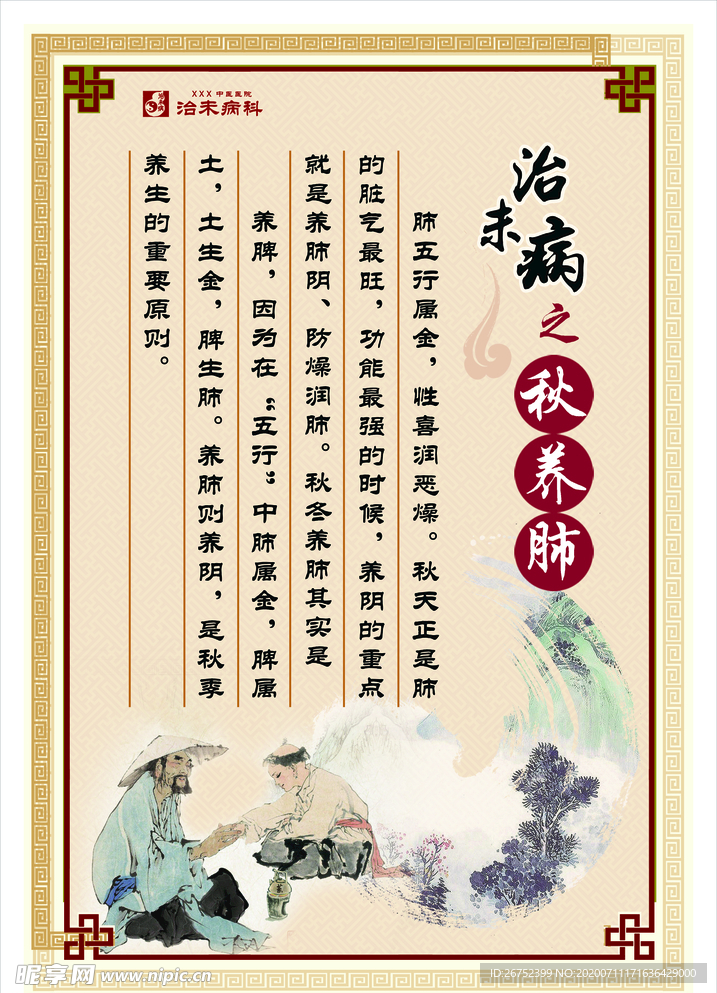 XXX中医医院
治未病科
治未病
之
秋养肺
肺五行属金，性喜润恶燥。秋天正是肺
的脏气最旺，功能最强的时候，养阴的重点
就是养肺阴、防燥润肺。秋冬养肺其实是
养脾，因为在“五行”中肺属金，脾属
土，土生金，脾生肺。养肺则养阴，是秋季
养生的重要原则。
昵享网 www.nipic.cn
ID:26752399 NO:20200711171636429000